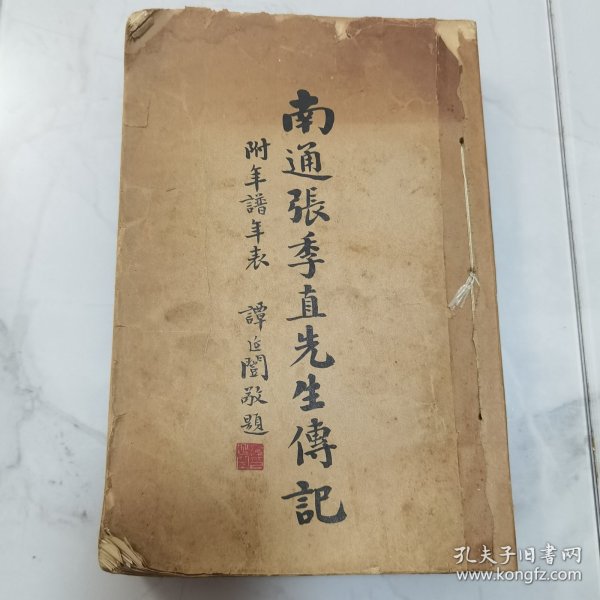 南通張季直先生傳記
附年譜年表
譚延闓敬題
孔夫子旧书网
www.kongfz.com